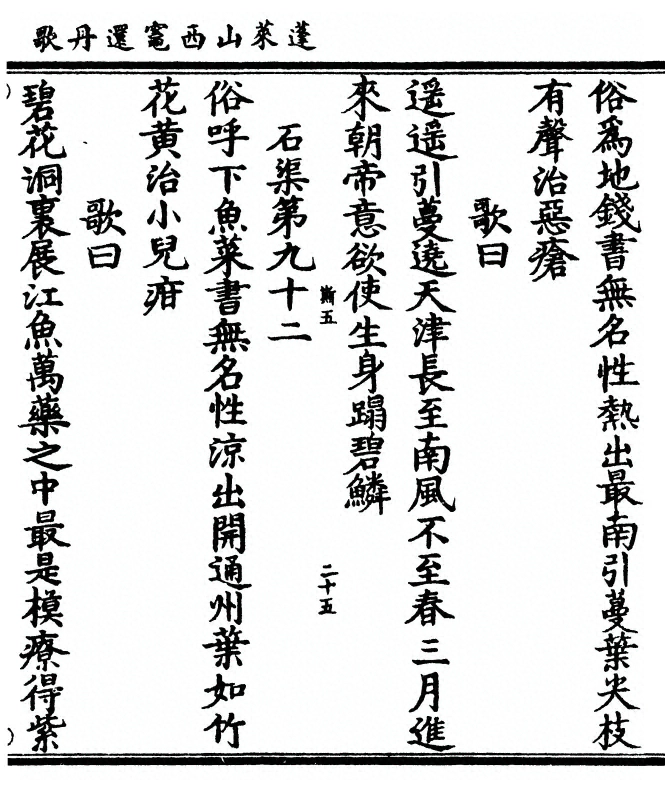 蓬萊山西竈還丹歌
俗爲地錢書無名性熱出最南引蔓葉尖枝
有聲治惡瘡
歌曰
遥遥引蔓遶天津長至南風不至春三月進
來朝帝意欲使生身蹋碧鱗
斯五
二十五
石渠第九十二
俗呼下魚菜書無名性涼出開通州葉如竹
花黄治小兒疳
歌曰
碧花洞裏展江魚萬藥之中最是模療得紫